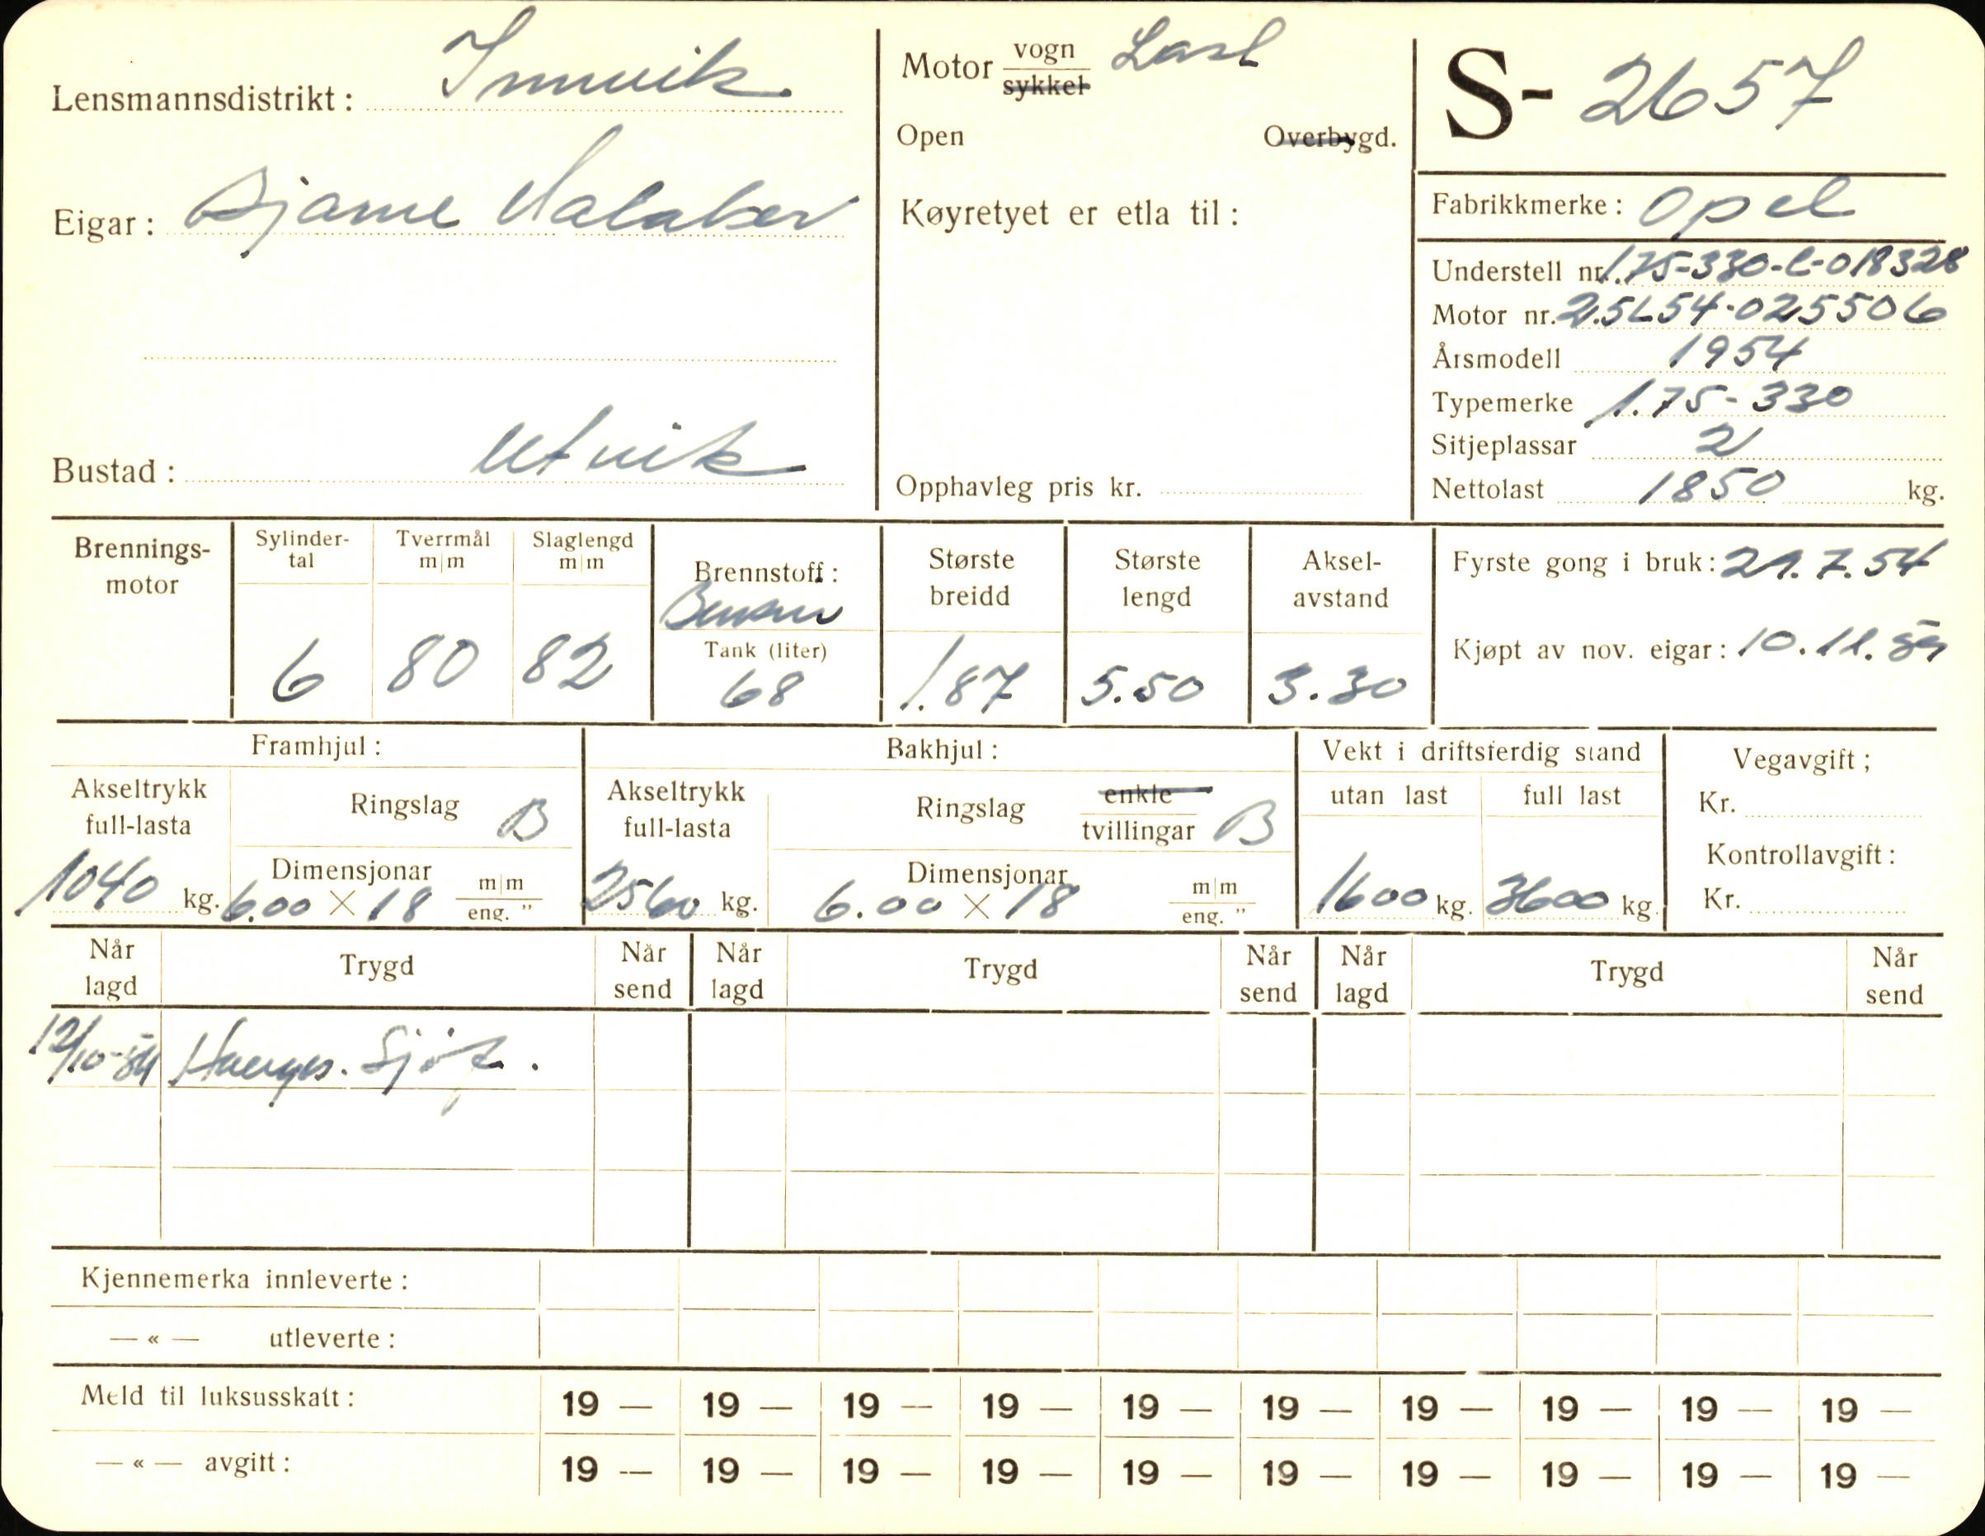 Lensmannsdistrikt: Innvik
Eigar: Bjarne Valaker
Bustad: Utvik
Motor vogn Last
sykkel
Open Overbygd.
Køyretyet er etla til:
Opphavleg pris kr.
S- 2657
Fabrikkmerke: Opel
Understell nr. 1.75-330-L-018328
Motor nr. 2.5L54-025506
Årsmodell 1954
Typemerke 1.75-330
Sitjeplassar 2
Nettolast 1850 kg.
Brennings-
motor
Sylinder-
tal
6
Tverrmål
m|m
80
Slaglengd
m|m
82
Brennstoff:
Bensin
Tank (liter)
68
Største
breidd
1.87
Største
lengd
5.50
Aksel-
avstand
3.30
Fyrste gong i bruk: 29.7.54
Kjøpt av nov. eigar: 10.11.59
Framhjul:
Akseltrykk
full-lasta
1040 kg.
Ringslag B
Dimensjonar
6.00 × 18 m|m
eng. "
Bakhjul:
Akseltrykk
full-lasta
2560 kg.
Ringslag enkle
tvillingar B
Dimensjonar
6.00 × 18 m|m
eng. "
Vekt i driftsferdig stand
utan last full last
1600 kg. 3600 kg.
Vegavgift;
Kr.
Kontrollavgift:
Kr.
Når
lagd Trygd Når
send Når
lagd Trygd Når
send Når
lagd Trygd Når
send
12/10-54 Sjøf.
Kjennemerka innleverte:
— « — utleverte:
Meld til luksusskatt: 19 — 19 — 19 — 19 — 19 — 19 — 19 — 19 — 19 — 19 —
— « — avgift: 19 — 19 — 19 — 19 — 19 — 19 — 19 — 19 — 19 — 19 —